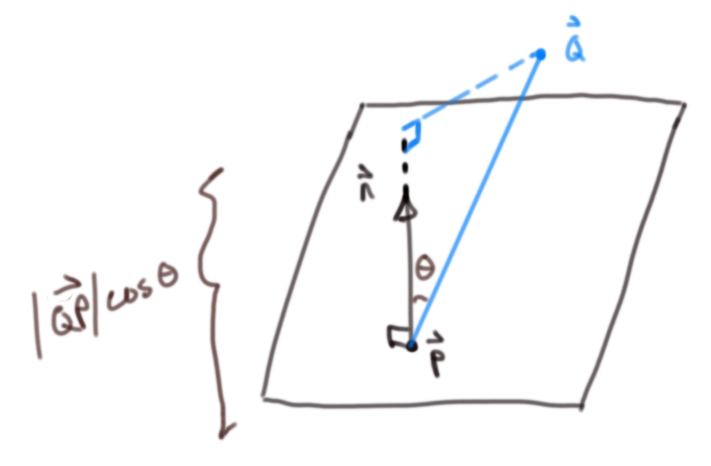 Q⃗
n⃗
|Q⃗P| cos θ
θ
P⃗